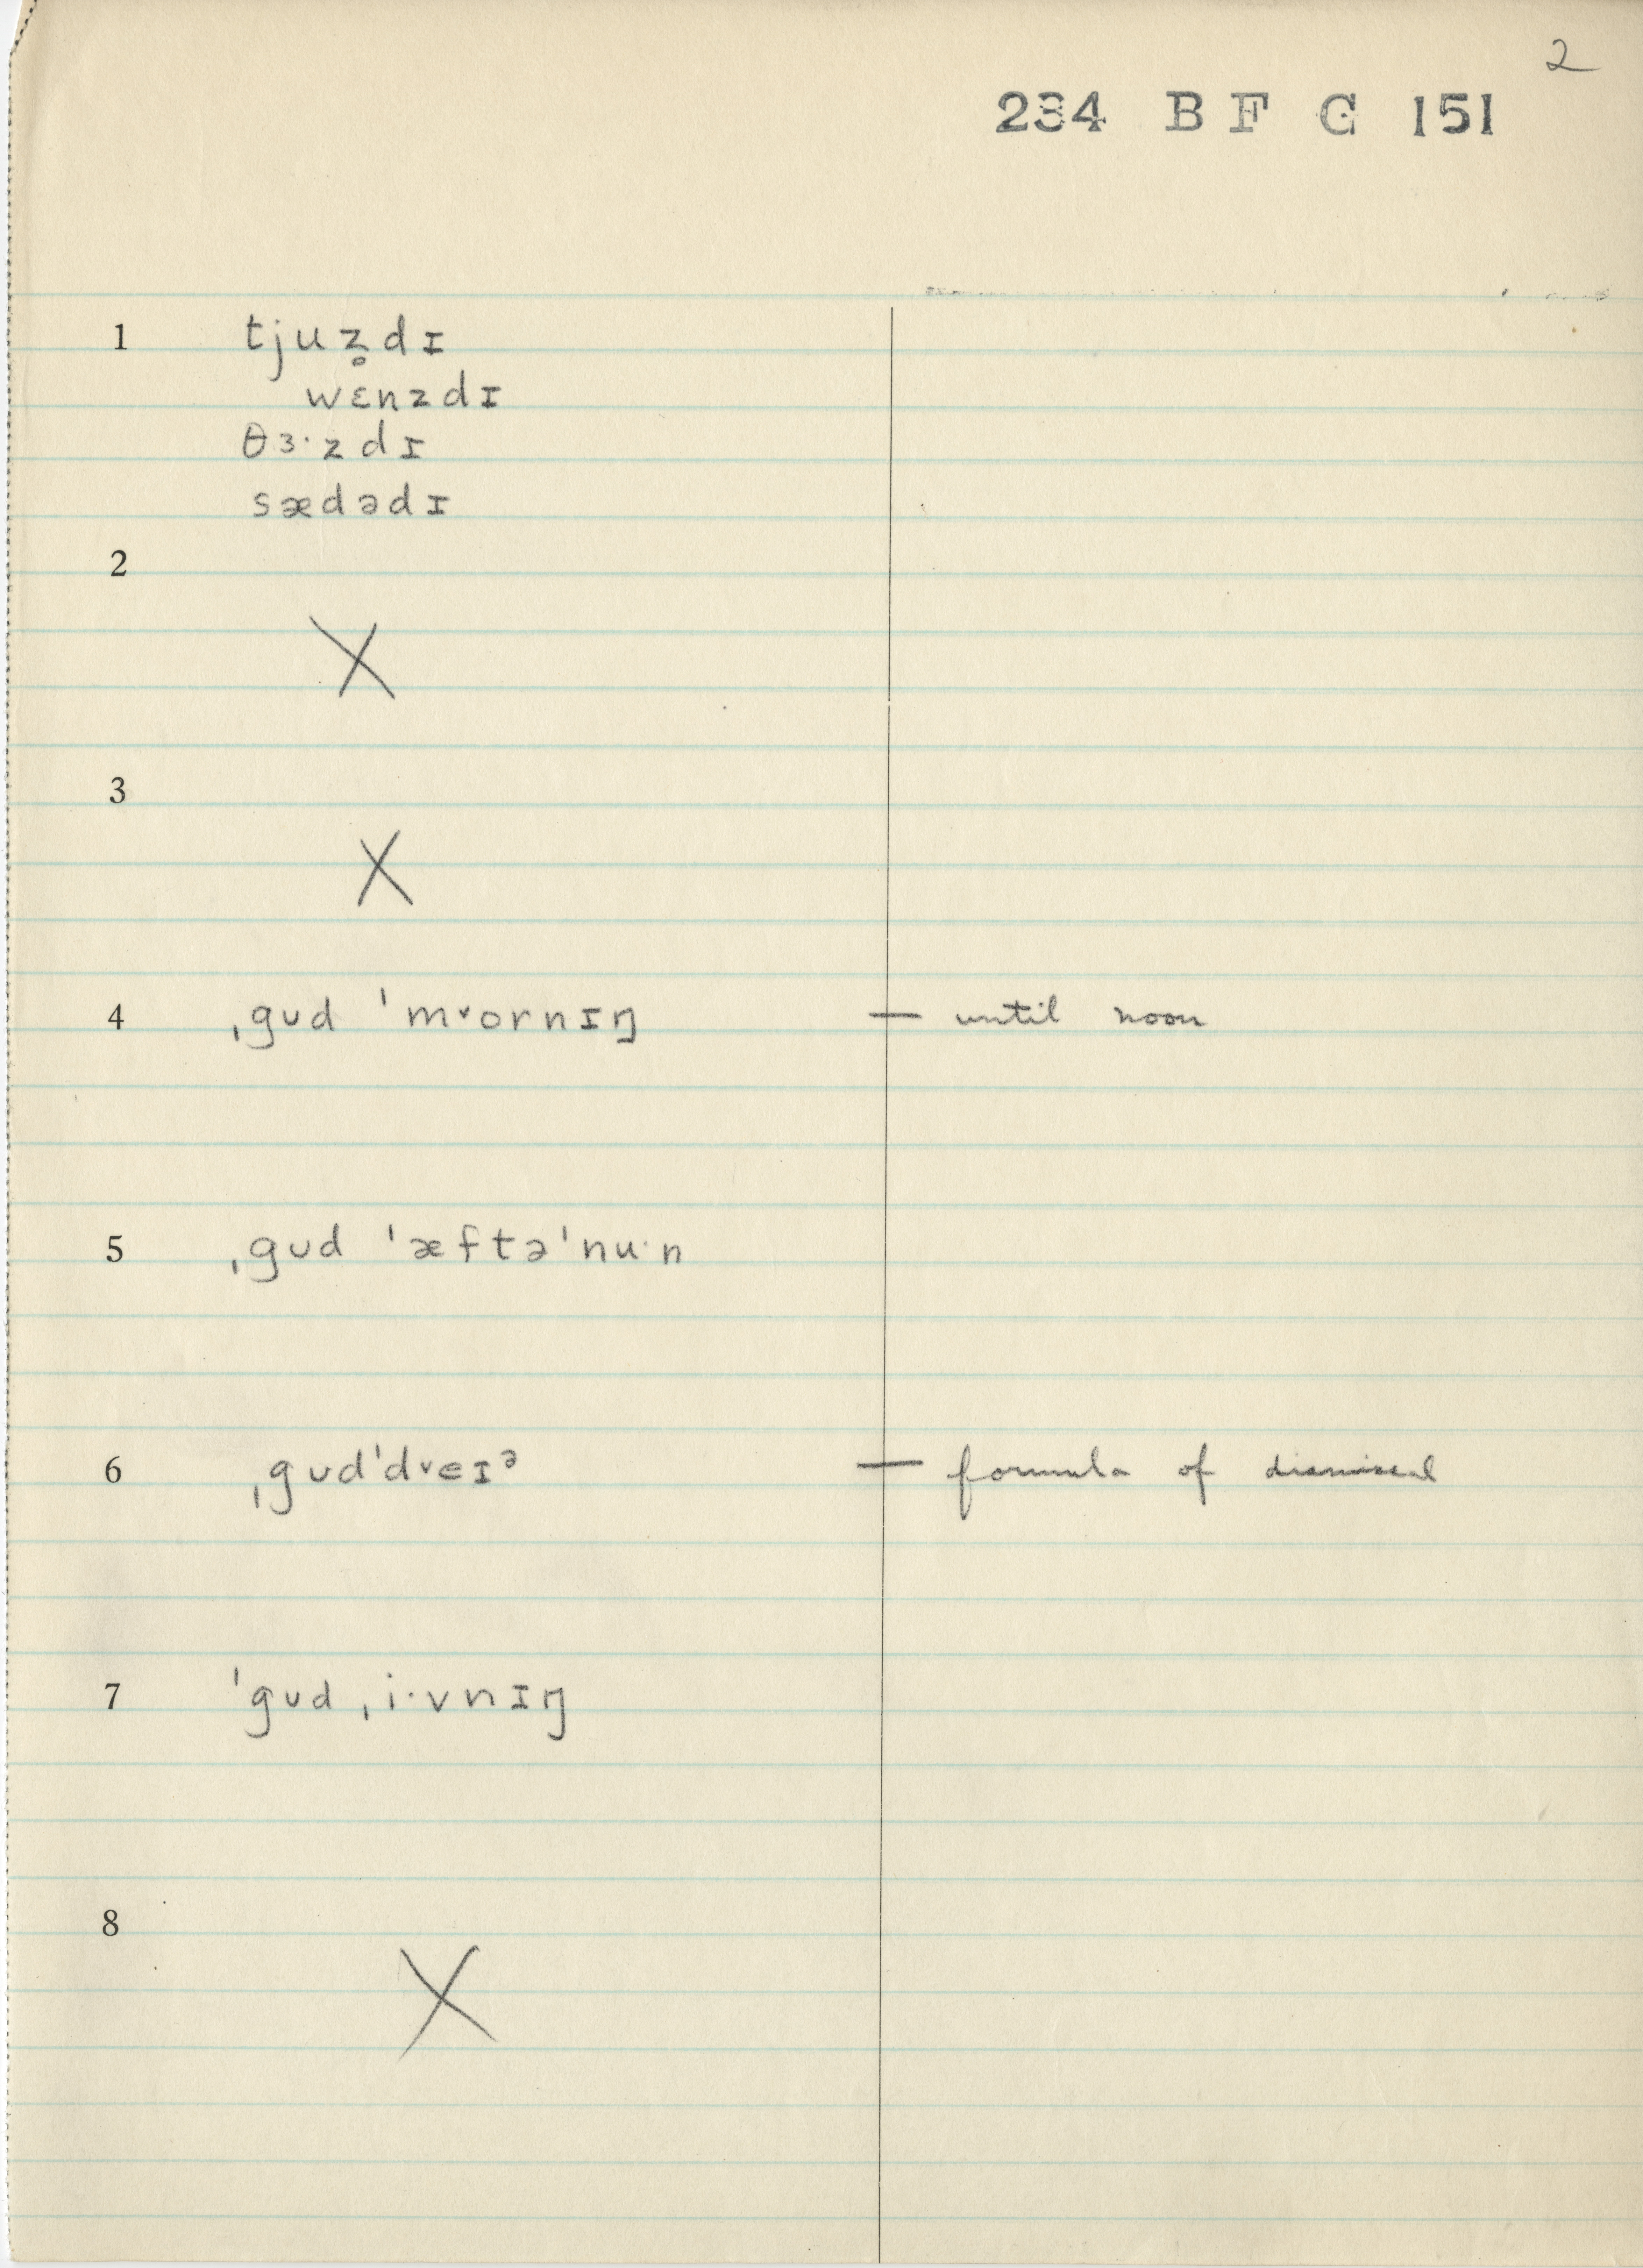 2
234 B F G 151
1 tjuz̥dɪ
wɛnzdɪ
θɜ·zdɪ
sædədɪ
2
X
3
X
4 ˌgʊd ˈmᵛornɪŋ — until noon
5 ˌgʊd ˈæftəˈnu·n
6 ˌgʊdˈdᵛeɪᵊ — formula of dismissal
7 ˈgʊd ˌi·vnɪŋ
8
X